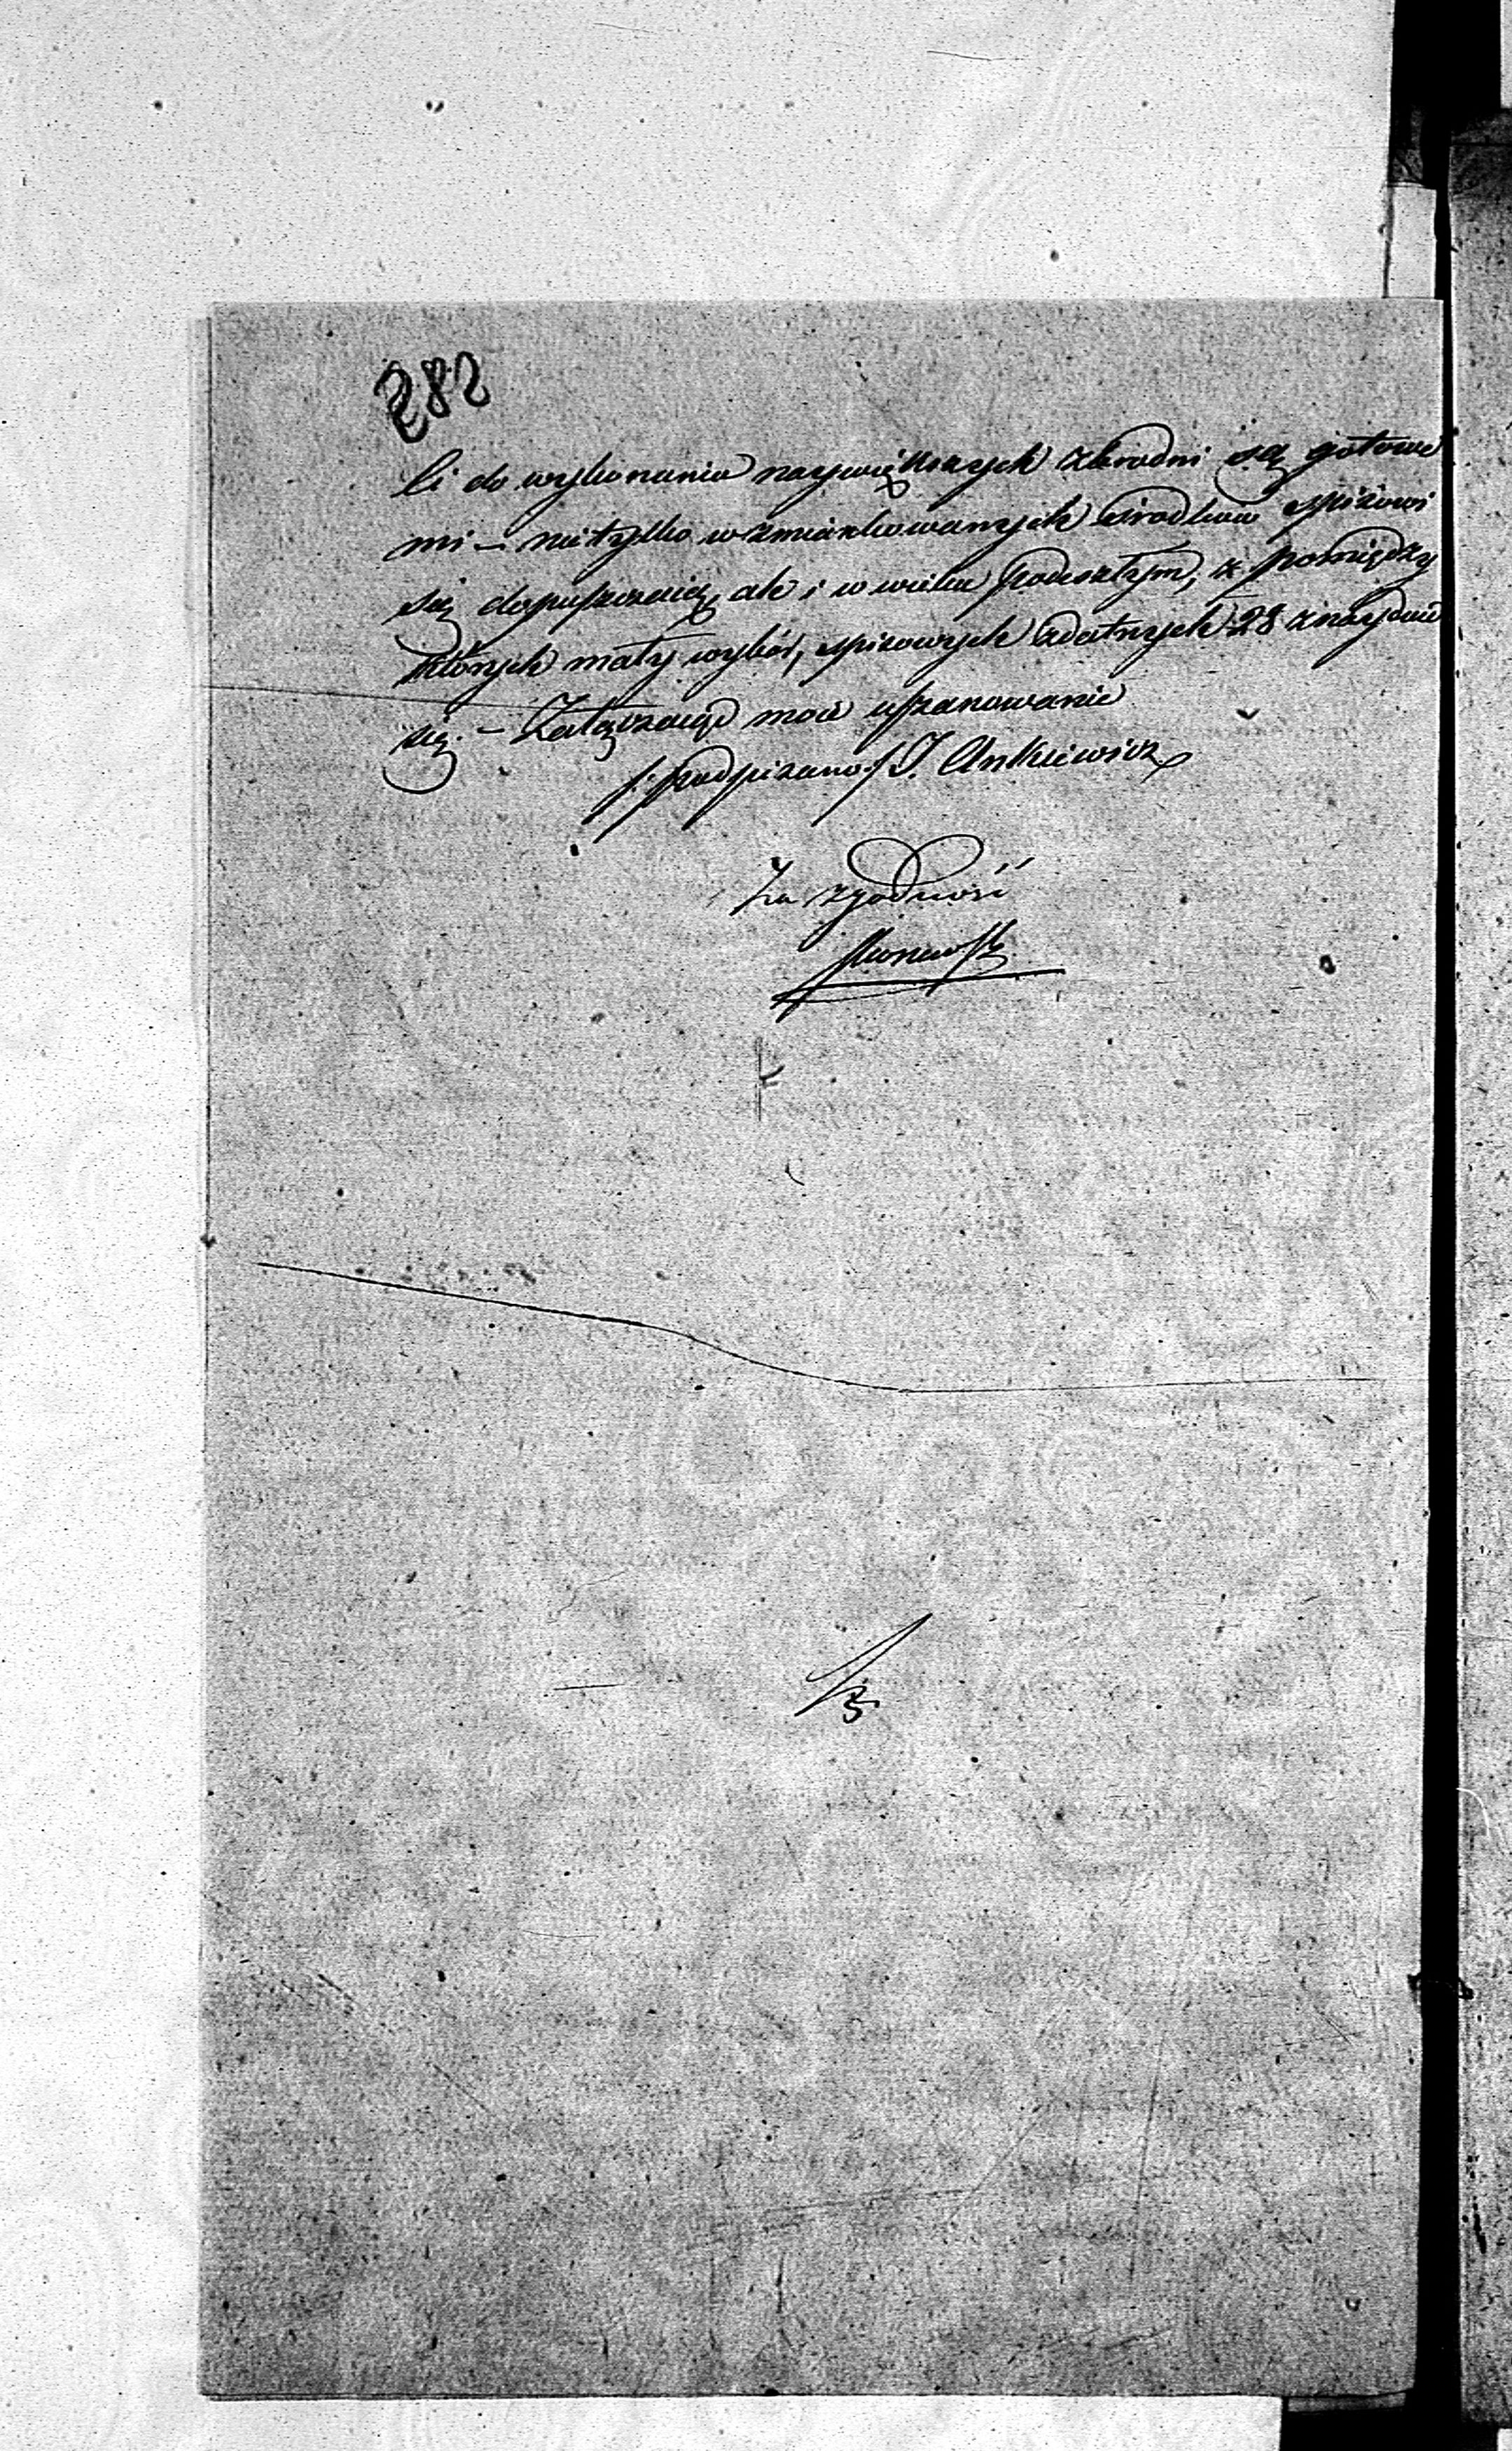 282
li do wykonania naywiększych zbrodni są gotowe
mi — nietylko wzmiankowanych środków spisowi
się dopuszczaią, ale i w wieku podeszłym, z pomiędzy
których mały wybór, spisowych zdatnych 28 znayduie
się. — Załączaiąc moie uszanowanie
/: podpisano :/ J. Ankiewicz
Za zgodność